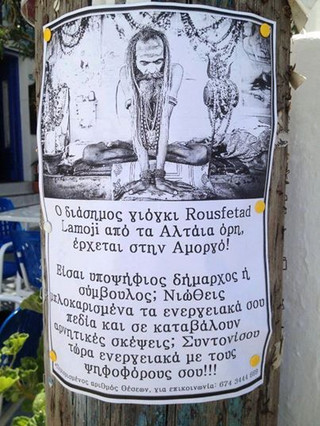 Ο διάσημος γιόγκι Rousfetad
Lamoji από τα Αλτάια όρη,
έρχεται στην Αμοργό!
Είσαι υποψήφιος δήμαρχος ή
σύμβουλος; Νιώθεις
μπλοκαρισμένα τα ενεργειακά σου
πεδία και σε καταβάλουν
αρνητικές σκέψεις; Συντονίσου
τώρα ενεργειακά με τους
ψηφοφόρους σου!!!
αριθμός θέσεων, για επικοινωνία: 674 3444